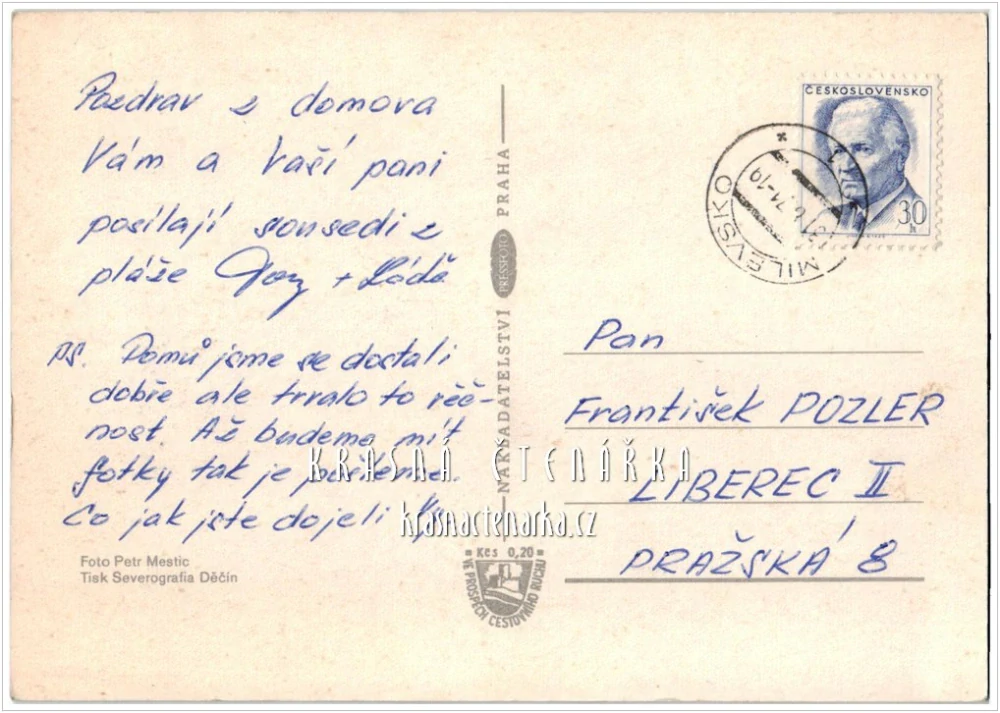 Pozdrav z domova
Vám a Vaší paní
posílají sousedi z
pláže + Láďa
PS. Domů jsme se dostali
dobře ale trvalo to věč-
nost. Až budeme mít
fotky tak je pošleme.
Co jak jste dojeli
Foto Petr Mestic
Tisk Severografia Děčín
NAKLADATELSTVÍ PRESSFOTO PRAHA
Kčs 0,20
VE PROSPĚCH CESTOVNÍHO RUCHU
KRÁSNÁ ČTENÁŘKA
krasnactenarka.cz
ČESKOSLOVENSKO
30 h
MILEVSKO
Pan
František POZLER
LIBEREC II
PRAŽSKÁ 8